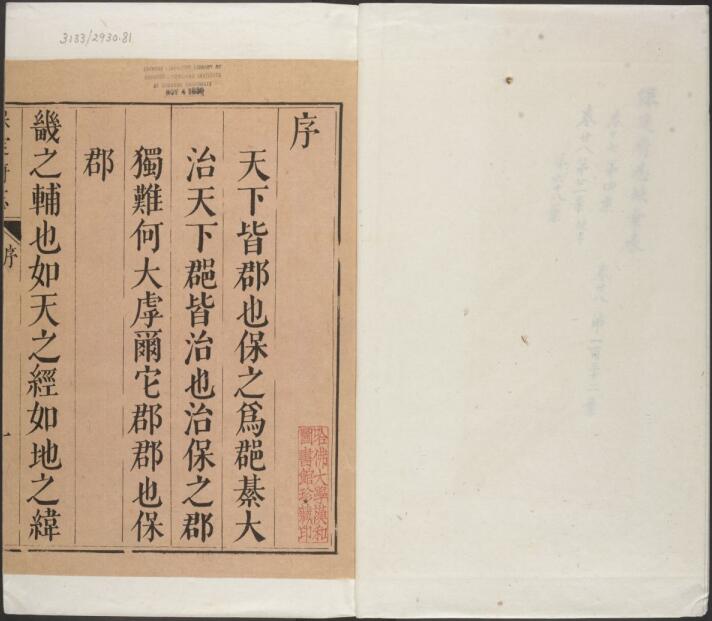 3133/2930.81
CHINESE-JAPANESE LIBRARY OF
HARVARD-YENCHING INSTITUTE
AT HARVARD UNIVERSITY
NOV 4 1939
序
天下皆郡也保之爲郡綦大
治天下郡皆治也治保之郡
獨難何大虖爾它郡郡也保
郡
畿之輔也如天之經如地之緯
保定府志
序
一
哈佛大學漢和
圖書館珍藏印